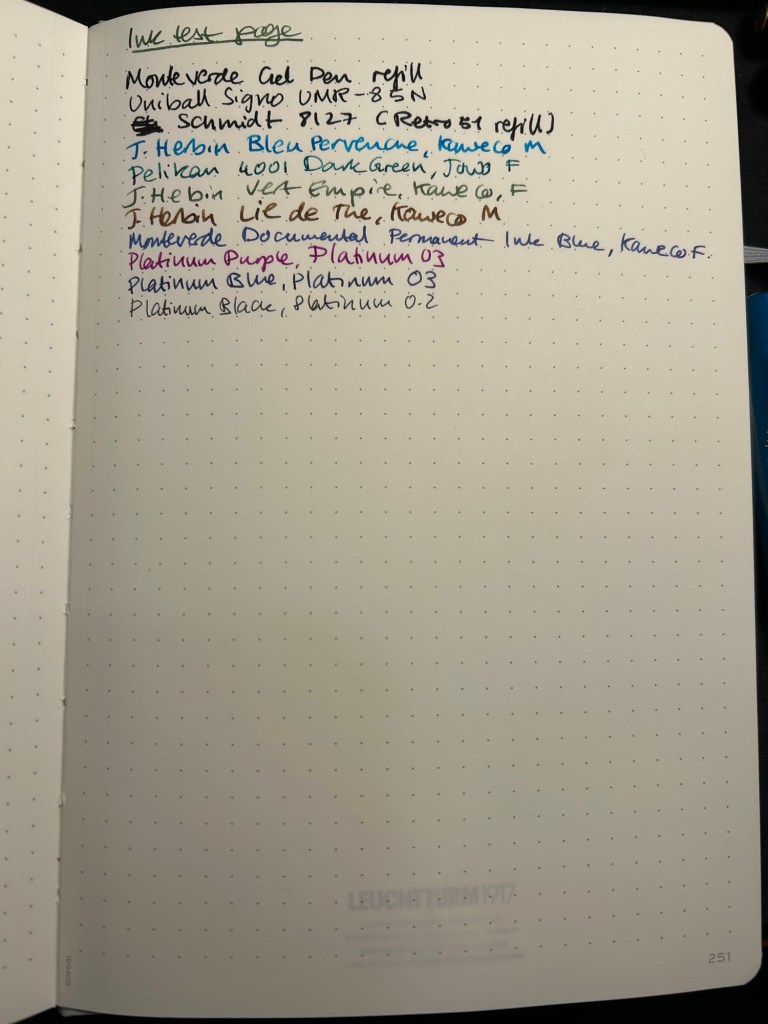 Ink test page
Monteverde Gel Pen refill
Uniball Signo UMR-85N
Schmidt 8127 (Retro 51 refill)
J. Herbin Bleu Pervenche, Kaweco M
Pelikan 4001 Dark Green, Jowo F
J. Hebin Vert Empire, Kaweco, F
J. Herbin Lie de The, Kaweco M
Monteverde Documental Permanent Ink Blue, Kaweco F.
Platinum Purple, Platinum 03
Platinum Blue, Platinum 03
Platinum Black, Platinum 0.2
LEUCHTTURM1917
251